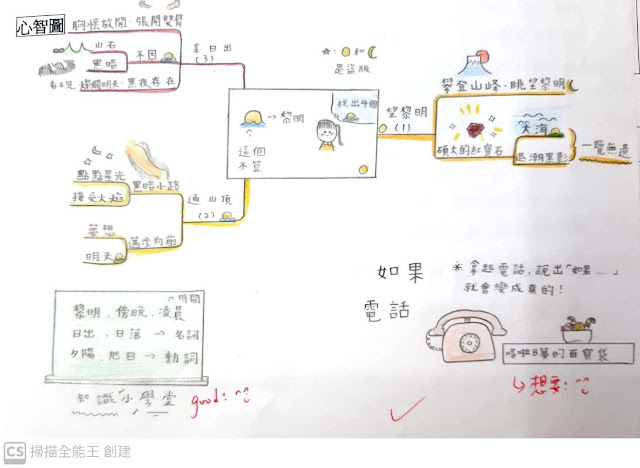 心智圖
胸懷放開·張開雙臂
山石
不因
黑暗
看不見 燦爛明天·黑夜存在
拿日出
(3)
☆:和
是盜版
→黎明
這個
不算
找出4個
望黎明
(1)
攀登山峰·眺望黎明
碩大的紅寶石
大海
退潮黑影
一覽無遺
點點星光
接受火焰
黑暗小路
夢想
明天
萬步向前
過山頂
(2)
時間
黎明、傍晚、凌晨
日出、日落→名詞
夕陽、旭日→動詞
知識"小學堂
good:
如果
電話
※拿起電話,說出「如果……」
就會變成真的!
哆啦B夢的百寶袋
想要:
CS 掃描全能王 創建